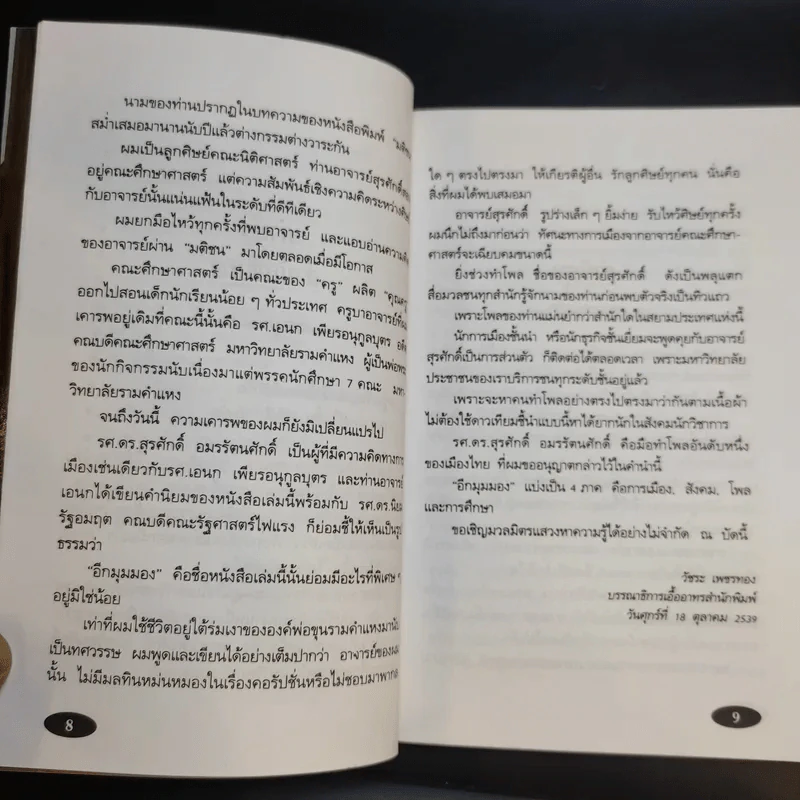 นามของท่านปรากฏในบทความของหนังสือพิมพ์ "มติชน
สม่ำเสมอมานานนับปีแล้วต่างกรรมต่างวาระกัน
ผมเป็นลูกศิษย์คณะนิติศาสตร์ ท่านอาจารย์สุรศักดิ์
อยู่คณะศึกษาศาสตร์ แต่ความสัมพันธ์เชิงความคิดระหว่าง
กับอาจารย์นั้นแน่นแฟ้นในระดับที่ดีทีเดียว
ผมยกมือไหว้ทุกครั้งที่พบอาจารย์ และแอบอ่านความคิด
ของอาจารย์ผ่าน "มติชน" มาโดยตลอดเมื่อมีโอกาส
คณะศึกษาศาสตร์ เป็นคณะของ "ครู" ผลิต
ออกไปสอนเด็กนักเรียนน้อย ๆ ทั่วประเทศ ครูบาอาจารย์ที่
เคารพอยู่เดิมที่คณะนี้นั้นคือ รศ.เอนก เพียรอนุกูลบุตร
คณบดีคณะศึกษาศาสตร์ มหาวิทยาลัยรามคำแหง ผู้เป็น
ของนักกิจกรรมนับเนื่องมาแต่พรรคนักศึกษา 7 คณะ มหา
วิทยาลัยรามคำแหง
จนถึงวันนี้ ความเคารพของผมก็ยังมิเปลี่ยนแปรไป
รศ.ดร.สุรศักดิ์ อมรรัตนศักดิ์ เป็นผู้ที่มีความคิดทางการ
เมืองเช่นเดียวกับรศ.เอนก เพียรอนุกูลบุตร และท่านอาจารย์
เอนกได้เขียนคำนิยมของหนังสือเล่มนี้พร้อมกับ รศ.ดร.นิยม
รัฐอมฤต คณบดีคณะรัฐศาสตร์ไฟแรง ก็ย่อมชี้ให้เห็นเป็นรูป
ธรรมว่า
"อีกมุมมอง" คือชื่อหนังสือเล่มนี้นั้นย่อมมีอะไรที่พิเศษ ๆ
อยู่มิใช่น้อย
เท่าที่ผมใช้ชีวิตอยู่ใต้ร่มเงาขององค์พ่อขุนรามคำแหงมานับ
เป็นทศวรรษ ผมพูดและเขียนได้อย่างเต็มปากว่า อาจารย์ของผม
นั้น ไม่มีมลทินหม่นหมองในเรื่องคอรัปชั่นหรือไม่ชอบมาพากล
8
ใด ๆ ตรงไปตรงมา ให้เกียรติผู้อื่น รักลูกศิษย์ทุกคน นั่นคือ
สิ่งที่ผมได้พบเสมอมา
อาจารย์สุรศักดิ์ รูปร่างเล็ก ๆ ยิ้มง่าย รับไหว้ศิษย์ทุกครั้ง
ผมนึกไม่ถึงมาก่อนว่า ทัศนะทางการเมืองจากอาจารย์คณะศึกษา-
ศาสตร์จะเฉียบคมขนาดนี้
ยิ่งช่วงทำโพล ชื่อของอาจารย์สุรศักดิ์ ดังเป็นพลุแตก
สื่อมวลชนทุกสำนักรู้จักนามของท่านก่อนพบตัวจริงเป็นทิวแถว
เพราะโพลของท่านแม่นยำกว่าสำนักใดในสยามประเทศแห่งนี้
นักการเมืองชั้นนำ หรือนักธุรกิจชั้นเยี่ยมจะพูดคุยกับอาจารย์
สุรศักดิ์เป็นการส่วนตัว ก็ติดต่อได้ตลอดเวลา เพราะมหาวิทยาลัย
ประชาชนของเราบริการชนทุกระดับชั้นอยู่แล้ว
เพราะจะหาคนทำโพลอย่างตรงไปตรงมาว่ากันตามเนื้อผ้า
ไม่ต้องใช้ดาวเทียมชี้นำแบบนี้หาได้ยากนักในสังคมนักวิชาการ
รศ.ดร.สุรศักดิ์ อมรรัตนศักดิ์ คือมือทำโพลอันดับหนึ่ง
ของเมืองไทย ที่ผมขออนุญาตกล่าวไว้ในคำนำนี้
"อีกมุมมอง" แบ่งเป็น 4 ภาค คือการเมือง, สังคม, โพล
และการศึกษา
ขอเชิญมวลมิตรแสวงหาความรู้ได้อย่างไม่จำกัด ณ บัดนี้
วัชระ เพชรทอง
บรรณาธิการเอื้ออาทรสำนักพิมพ์
วันศุกร์ที่ 18 ตุลาคม 2539
9